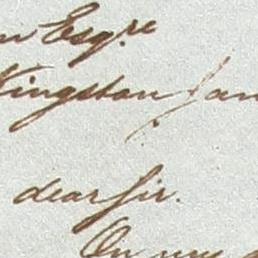 Esqre
Kingston Jam
dear Sir.
On my